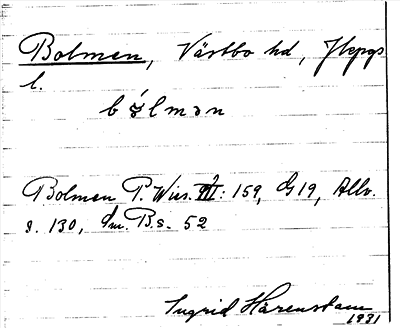 Bolmen, Västbo hd, Jkpgs
l.
bó̤lmən
Bolmen P. Wies. III: 159, G19, Allv.
s. 130, Sm. B.s. 52
Ingrid Härenstam
1931